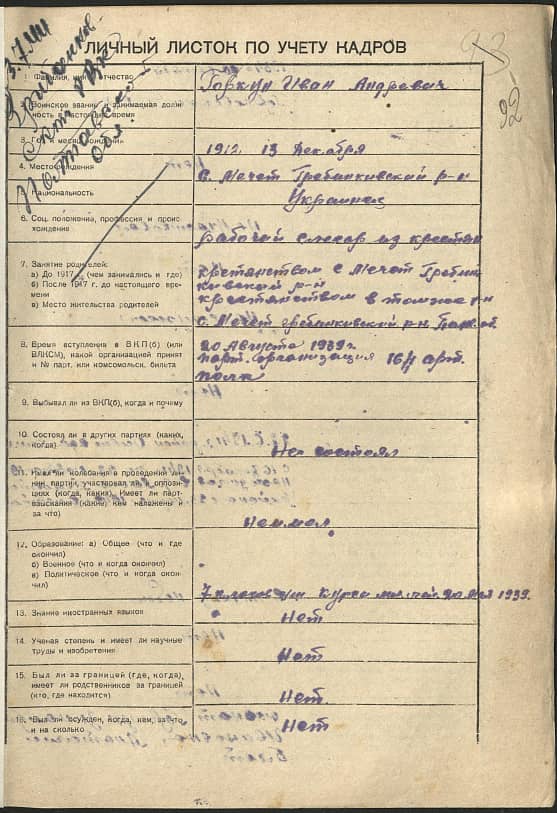 ЛИЧНЫЙ ЛИСТОК ПО УЧЕТУ КАДРОВ
93
92
3.7.VIII
Обл.
1 Фамилия, имя отчество
Горкун Иван Андревич
2 Воинское звание и занимаемая долж
ность в настоящее время
3. Год и месяц рождения
1912. 13 декабря
4. Место рождения
с. Мечет Гребинкивский р-н
Национальность
Украинец
6. Соц. положение, профессия и проис
хождение
рабочий слесар из крестян
7. Занятие родителей:
а) До 1917 г. (чем занимались и где)
б) После 1917 г. до настоящего вре-
мени
в) Место жительства родителей
крстянством с Мечет Гребин
кивский р-н
крестянством в томже р-н
с. Мечет гребинкивский р-н
8. Время вступления в ВКП(б) (или
ВЛКСМ), какой организацией принят
и № парт. или комсомольск. билета
20 Августа 1939г.
парт. организация 164 арт.
полк
9. Выбывал ли из ВКП(б), когда и почему
10. Состоял ли в других партиях (каких,
когда)
Не состоял
11. Имел ли колебания в проведении ли-
нии партии, участвовал ли в оппози-
циях (когда, каких). Имеет ли парт-
взыскания (какие, кем наложены и
за что)
Неимел
12. Образование: а) Общее (что и где
окончил)
б) Военное (что и когда окончил)
в) Политическое (что и когда окон-
чил)
7 класов Курсы 20 мая 1939.
13. Знание иностранных языков
Нет
14. Ученая степень и имеет ли научные
труды и изобретения
Нет
15. Был ли за границей (где, когда),
имеет ли родственников за границей
(кто, где находится)
Нет.
16. Был ли осужден, когда, кем, за что
и на сколько
Нет